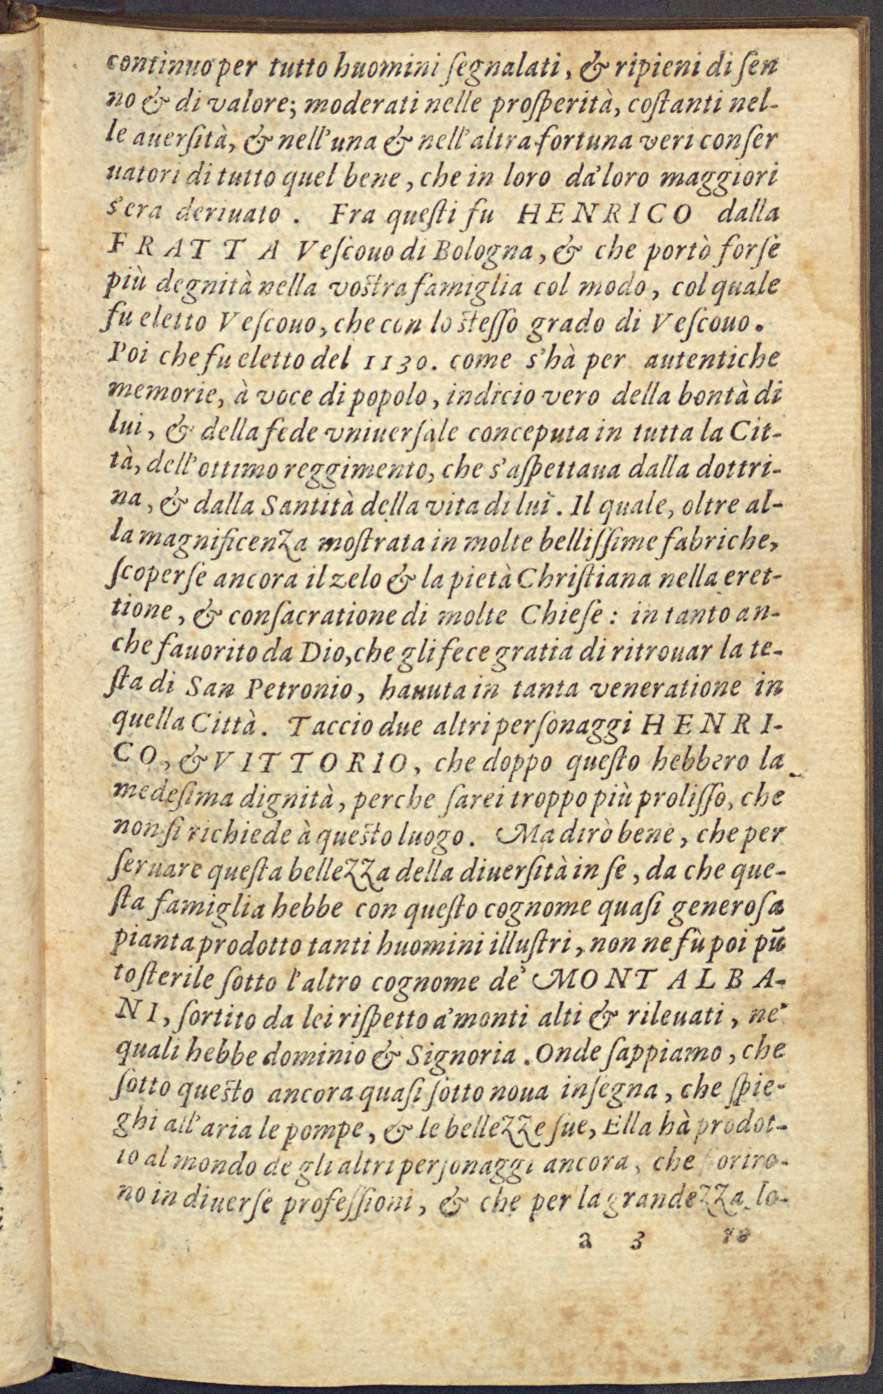 continuo per tutto huomini ſegnalati, & ripieni di ſen
no & di valore; moderati nelle proſperità, coſtanti nel-
le auerſità, & nell'una & nell'altra fortuna veri conſer
uatori di tutto quel bene, che in loro da'loro maggiori
s'era deriuato. Fra queſti fu HENRICO dalla
FRATTA Veſcouo di Bologna, & che portò forſe
più degnità nella voſtra famiglia col modo, col quale
fu eletto Veſcouo, che con lo ſteſſo grado di Veſcouo.
Poi che fu eletto del 1130. come s'hà per autentiche
memorie, à voce di popolo, indicio vero della bontà di
lui, & della fede vniuerſale conceputa in tutta la Cit-
tà, dell'ottimo reggimento, che s'aſpettaua dalla dottri-
na, & dalla Santità della vita di lui. Il quale, oltre al-
la magnificenza moſtrata in molte belliſſime fabriche,
ſcoperſe ancora il zelo & la pietà Chriſtiana nella eret-
tione, & conſacratione di molte Chieſe: in tanto an-
che fauorito da Dio, che gli fece gratia di ritrouar la te-
ſta di San Petronio, hauuta in tanta veneratione in
quella Città. Taccio due altri perſonaggi HENRI-
CO, & VITTORIO, che doppo queſto hebbero la
medeſima dignità, perche ſarei troppo più proliſſo, che
non ſi richiede à queſto luogo. Ma dirò bene, che per
ſeruare queſta bellezza della diuerſità in ſe, da che que-
ſta famiglia hebbe con queſto cognome quaſi generoſa
pianta prodotto tanti huomini illuſtri, non ne fù poi pū
to ſterile ſotto l'altro cognome de' MONTALBA-
NI, ſortito da lei riſpetto a'monti alti & rileuati, ne'
quali hebbe dominio & Signoria. Onde ſappiamo, che
ſotto queſto ancora quaſi ſotto noua inſegna, che ſpie-
ghi all'aria le pompe, & le bellezze ſue, Ella hà prodot-
to al mondo de gli altri perſonaggi ancora, che fioriro-
no in diuerſe profeſſioni, & che per la grandezza lo-
a 3 ro